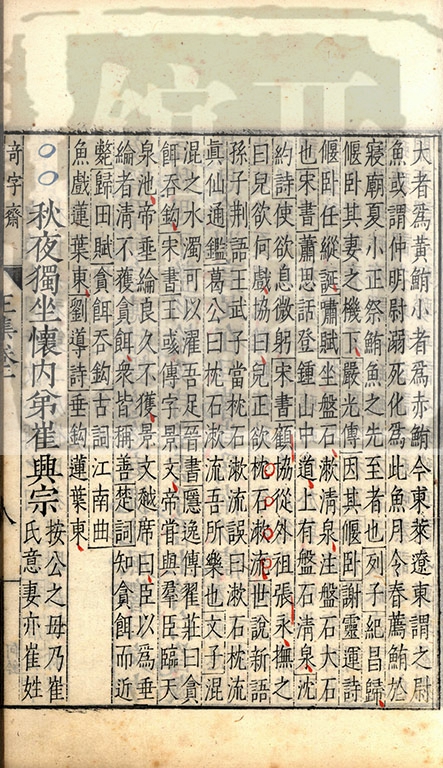 大者為黃鮪小者為赤鮪今東萊遼東謂之尉
魚或謂仲明尉溺死化為此魚月令春薦鮪於
寢廟夏小正祭鮪魚之先至者也列子紀昌歸
偃臥其妻之機下嚴光傳因其偃臥謝靈運詩
偃臥任縱誕嘯賦坐盤石漱清泉注盤石大石
也宋書蕭思話登鍾山中道上有盤石清泉沈
約詩使欲息微躬宋書顧協從外祖張永撫之
曰兒欲何戲協曰兒正欲枕石漱流世說新語
孫子荆語王武子當枕石漱流誤曰漱石枕流
眞仙通鑑葛公曰枕石漱流吾所樂也文子混
混之水濁可以濯吾足晉書隱逸傳翟莊曰貪
餌吞鈎宋書王彧傳字景文帝嘗與羣臣臨天
泉池帝垂綸良久不獲景文越席曰臣以爲垂
綸者清不獲貪餌衆皆稱善楚詞知貪餌而近
斃歸田賦貪餌吞鈎古詞江南曲
魚戲蓮葉東劉導詩垂鈎蓮葉東
秋夜獨坐懷內弟崔興宗
按公之母乃崔
氏意妻亦崔姓
奇字齋
八